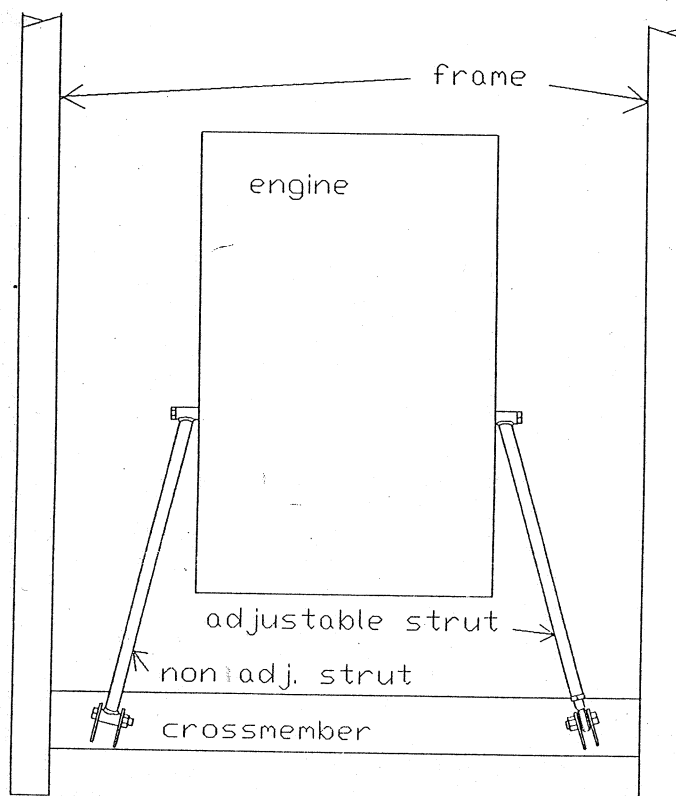 frame
engine
adjustable strut
non adj. strut
crossmember